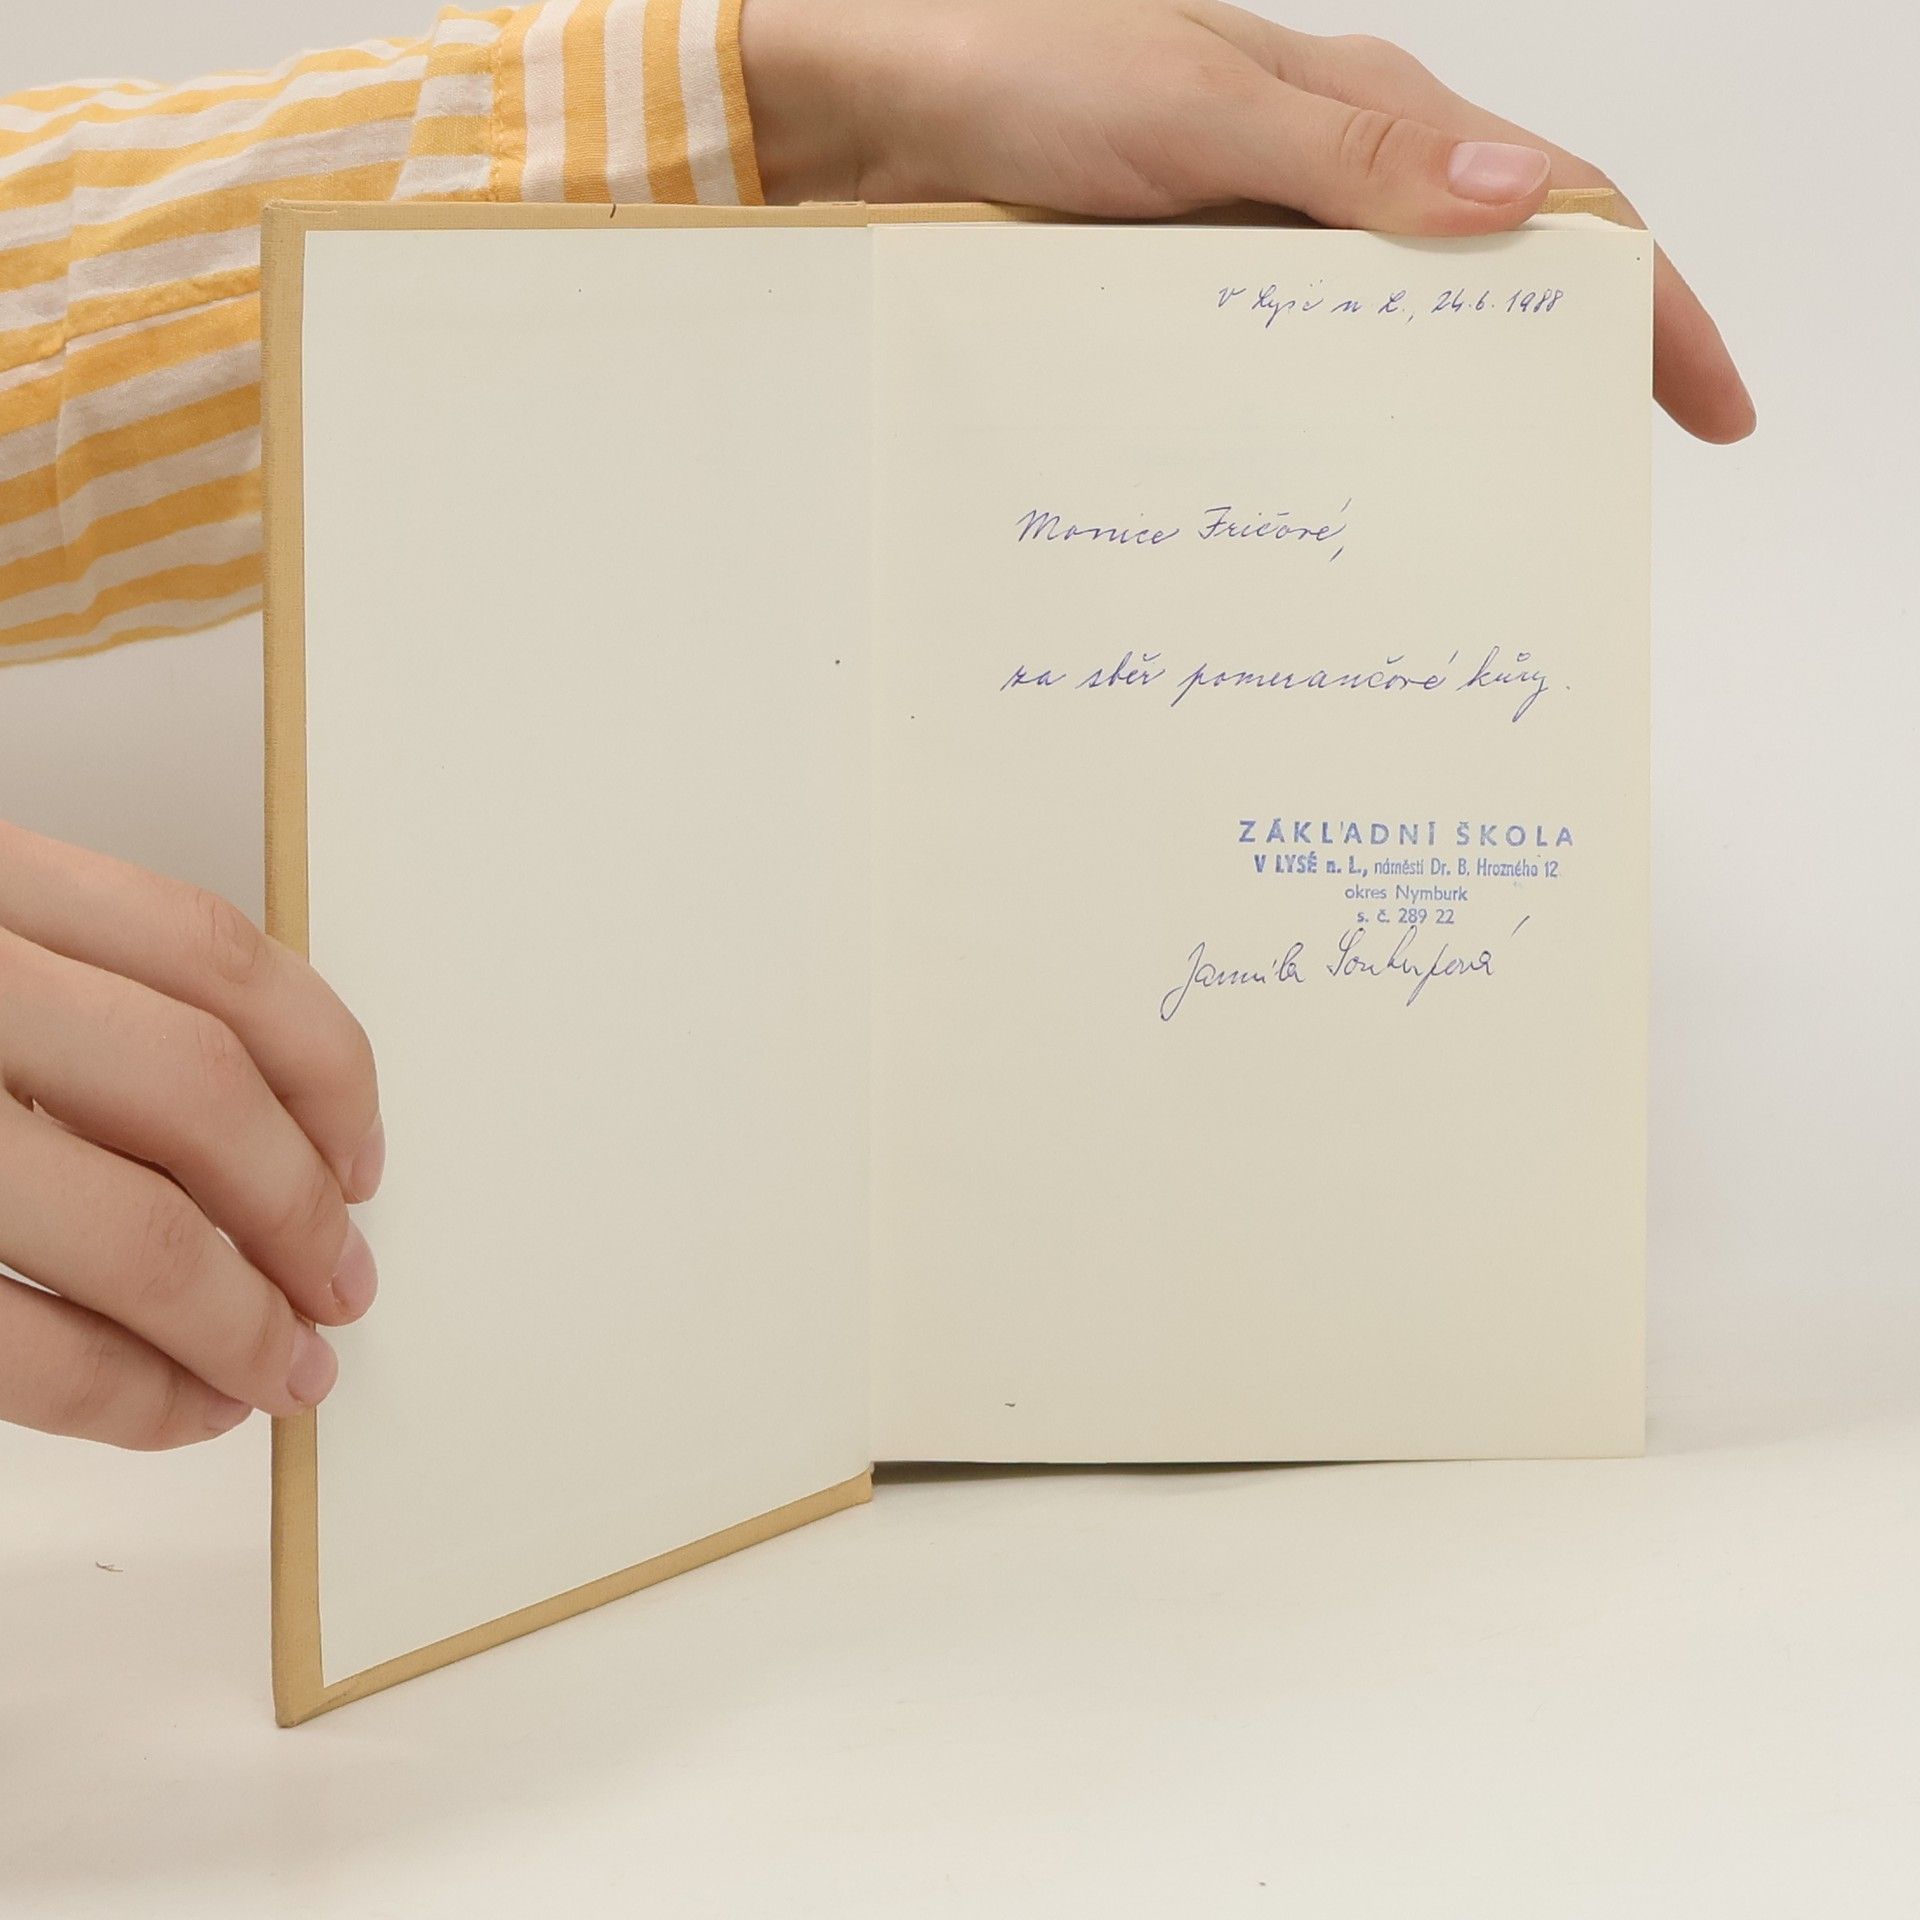 V Lysé n L., 24.6.1988
Monice Fričové,
za sběr pomerančové kůry.
ZÁKLADNÍ ŠKOLA
V LYSÉ n. L., náměstí Dr. B. Hrozného 12
okres Nymburk
s. č. 289 22
Jarmila Soukupová